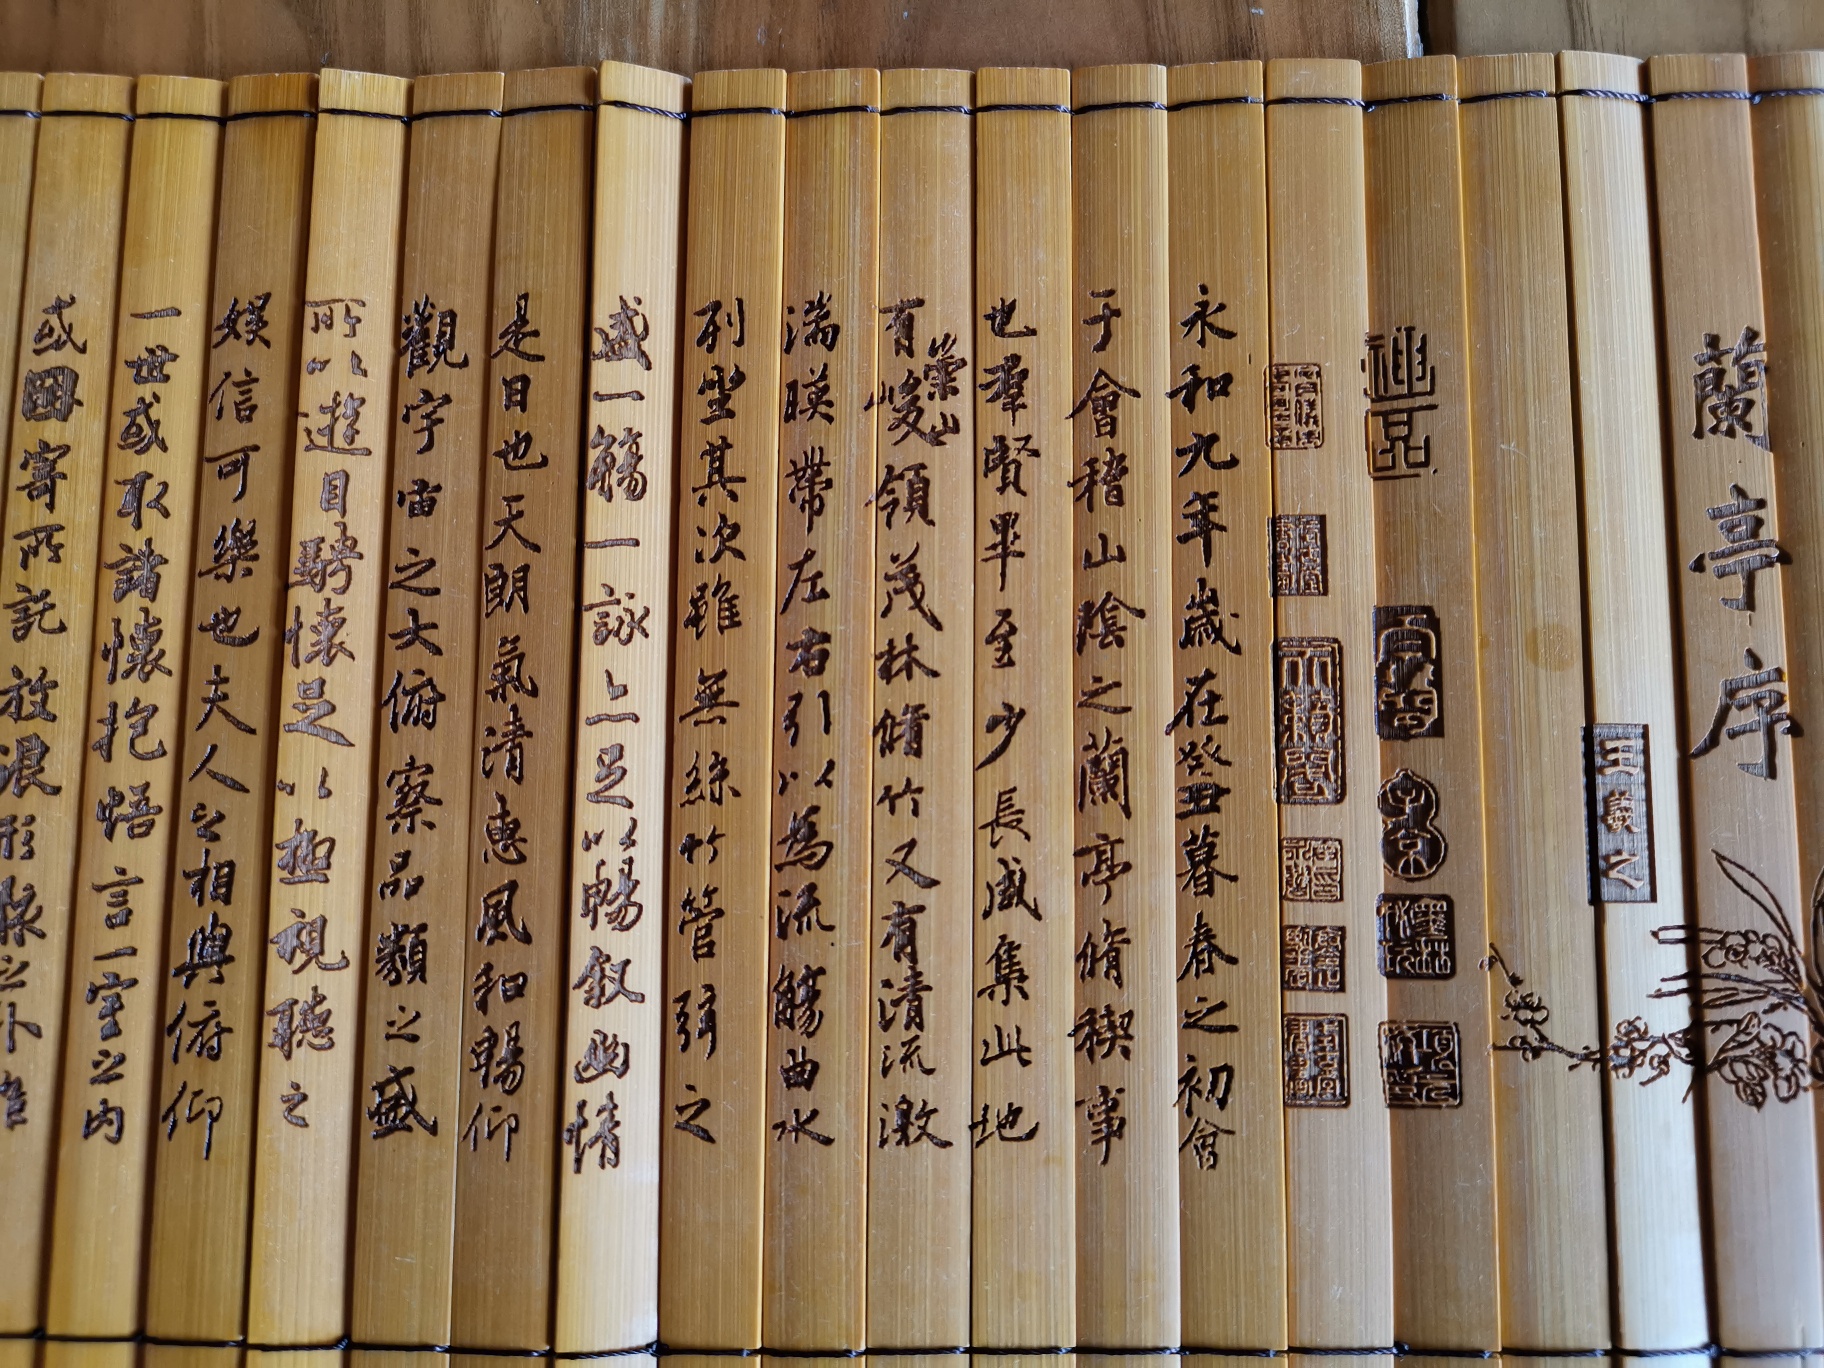 蘭亭序
王羲之
神品
子京
永和九年歲在癸丑暮春之初會
于會稽山陰之蘭亭脩稧事
也羣賢畢至少長咸集此地
有崇山峻領茂林脩竹又有清流激
湍暎帶左右引以為流觴曲水
列坐其次雖無絲竹管弦之
盛一觴一詠亦足以暢叙幽情
是日也天朗氣清惠風和暢仰
觀宇宙之大俯察品類之盛
所以遊目騁懷足以極視聽之
娛信可樂也夫人之相與俯仰
一世或取諸懷抱悟言一室之內
或因寄所託放浪形骸之外